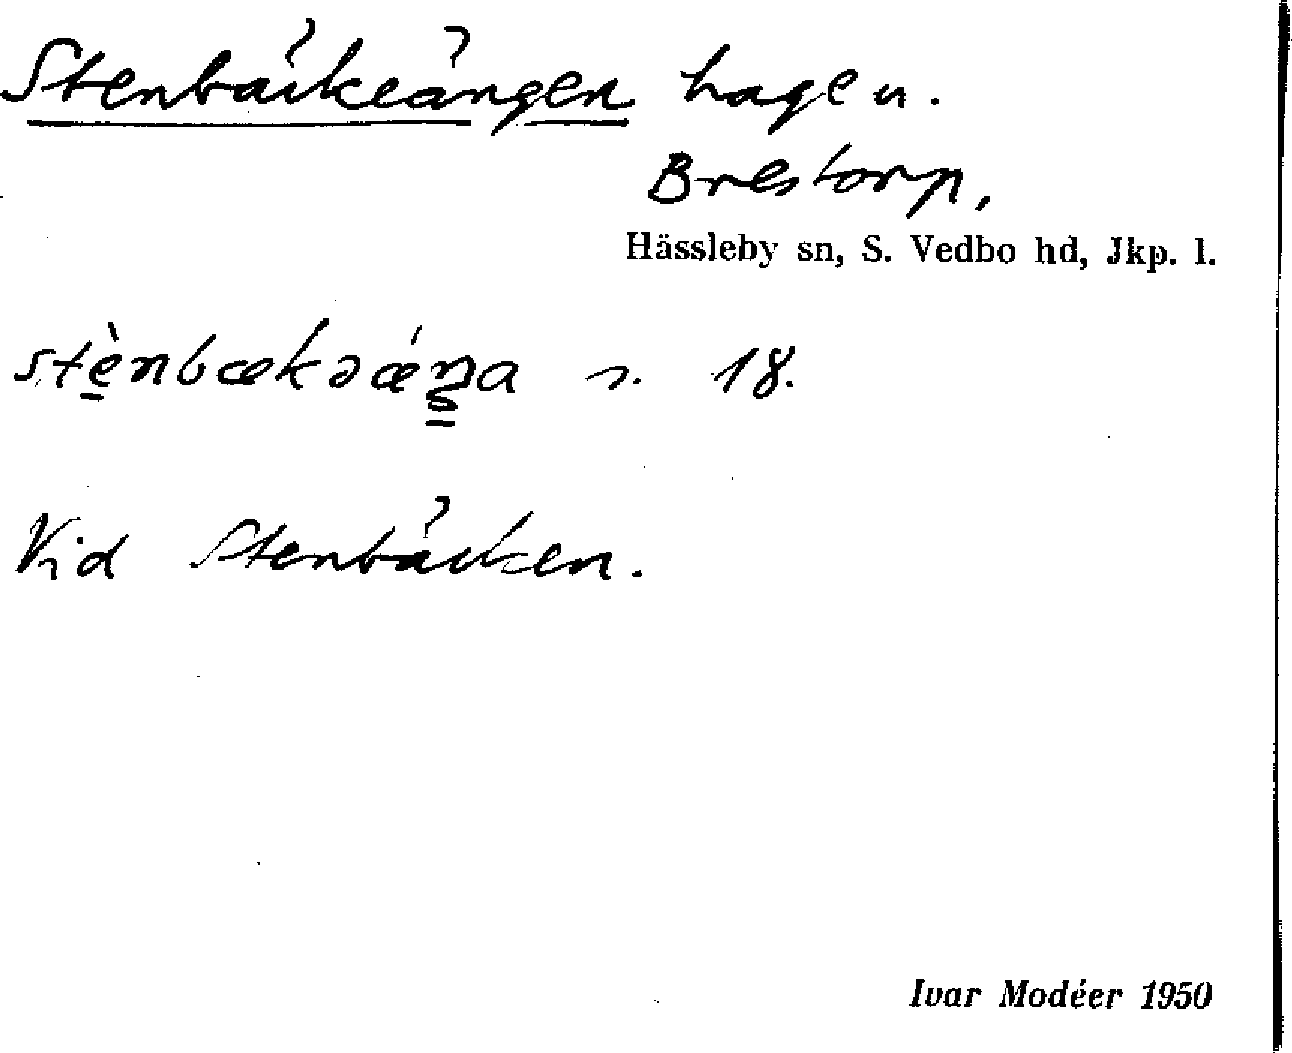 Stenbäckeängen hagen.
Brestorp,
Hässleby sn, S. Vedbo hd, Jkp. l.
stènbækəǽŋa s. 18.
Vid Stenbäcken.
Ivar Modéer 1950